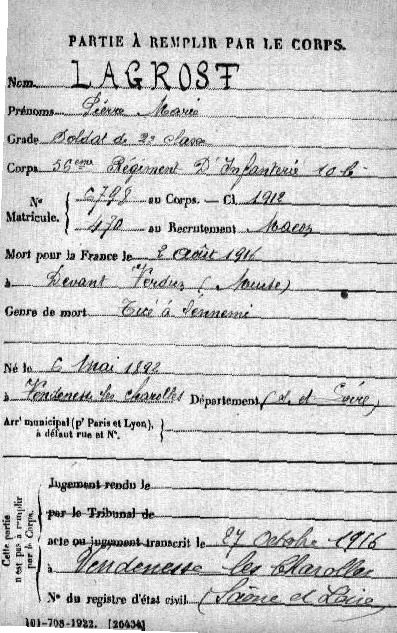 PARTIE À REMPLIR PAR LE CORPS.
Nom LAGROST
Prénoms Pierre Marie
Grade Soldat de 2e classe
Corps 56eme Régiment D'Infanterie 10
N° Matricule. { 6798 au Corps. — Cl. 1912
470 au Recrutement Macon
Mort pour la France le 2 Août 1916
à Devant Verdun (Meuse)
Genre de mort Tué à l'ennemi
Né le 6 Mai 1892
à Vendenesse les Charolles Département (S. et Loire)
Arrt municipal (pr Paris et Lyon), à défaut rue et N°.
Cette partie n'est pas à remplir par le Corps.
Jugement rendu le
par le Tribunal de
acte ou jugement transcrit le 27 Octobre 1916
à Vendenesse les Charolles
N° du registre d'état civil (Saône et Loire)
101-708-1922. [20434]